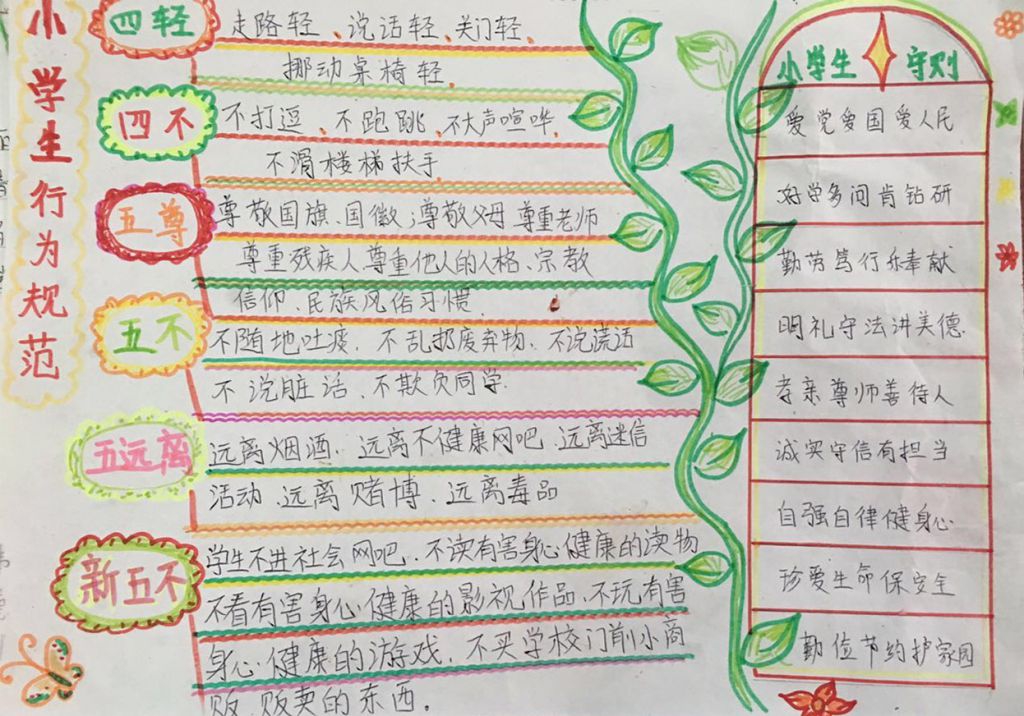 小学生行为规范
四轻
走路轻、说话轻、关门轻、
挪动桌椅轻、
四不
不打逗、不跑跳、不大声喧哗、
不滑楼梯扶手、
五尊
尊敬国旗、国徽；尊敬父母、尊重老师
尊重残疾人、尊重他人的人格、宗教
信仰、民族风俗习惯、
五不
不随地吐痰、不乱扔废弃物、不说谎话
不说脏话、不欺负同学、
五远离
远离烟酒、远离不健康网吧、远离迷信
活动、远离赌博、远离毒品
新五不
学生不进社会网吧、不读有害身心健康的读物
不看有害身心健康的影视作品、不玩有害
身心健康的游戏、不买学校门前小商
贩、贩卖的东西。
小学生守则
爱党爱国爱人民
好学多问肯钻研
勤劳笃行乐奉献
明礼守法讲美德
孝亲尊师善待人
诚实守信有担当
自强自律健身心
珍爱生命保安全
勤俭节约护家园